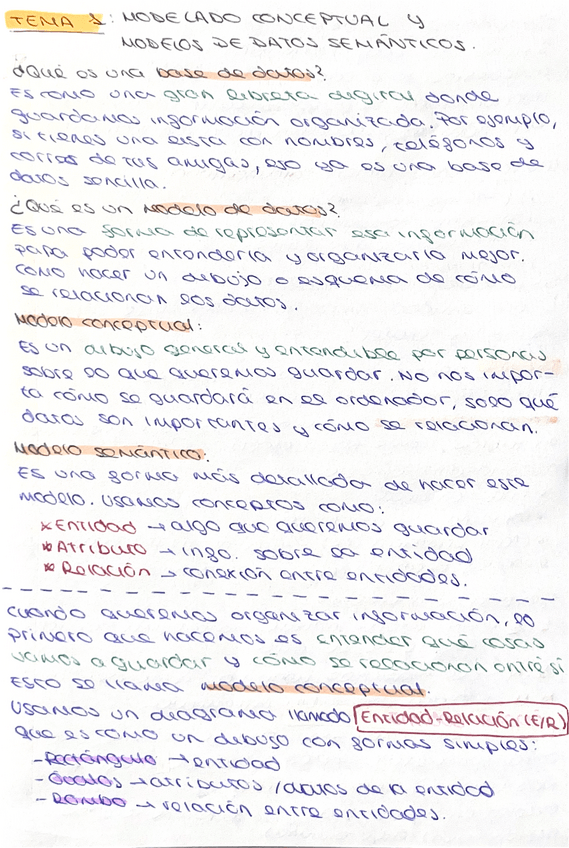 TEMA 1: MODELADO CONCEPTUAL Y
MODELOS DE DATOS SEMÁNTICOS.
¿Qué es una base de datos?
Es como una gran libreta digital donde
guardamos información organizada. Por ejemplo,
si tienes una lista con nombres, teléfonos y
correos de tus amigas, eso ya es una base de
datos sencilla.
¿Qué es un modelo de datos?
Es una forma de representar esa información
para poder entenderla y organizarla mejor.
Como hacer un dibujo o esquema de cómo
se relacionan los datos.
Modelo conceptual:
Es un dibujo general y entendible por personas
sobre lo que queremos guardar. No nos impor-
ta cómo se guardará en el ordenador, solo qué
datos son importantes y cómo se relacionan.
Modelo semántico:
Es una forma más detallada de hacer este
modelo. Usamos conceptos como:
* Entidad → algo que queremos guardar
* Atributo → info. sobre la entidad
* Relación → conexión entre entidades.
Cuando queremos organizar información, lo
primero que hacemos es entender qué cosas
vamos a guardar y cómo se relacionan entre sí
Esto se llama modelo conceptual.
Usamos un diagrama llamado Entidad-Relación (E/R)
que es como un dibujo con formas simples:
- Rectángulo → entidad
- Óvalos → atributos / datos de la entidad
- Rombo → relación entre entidades.